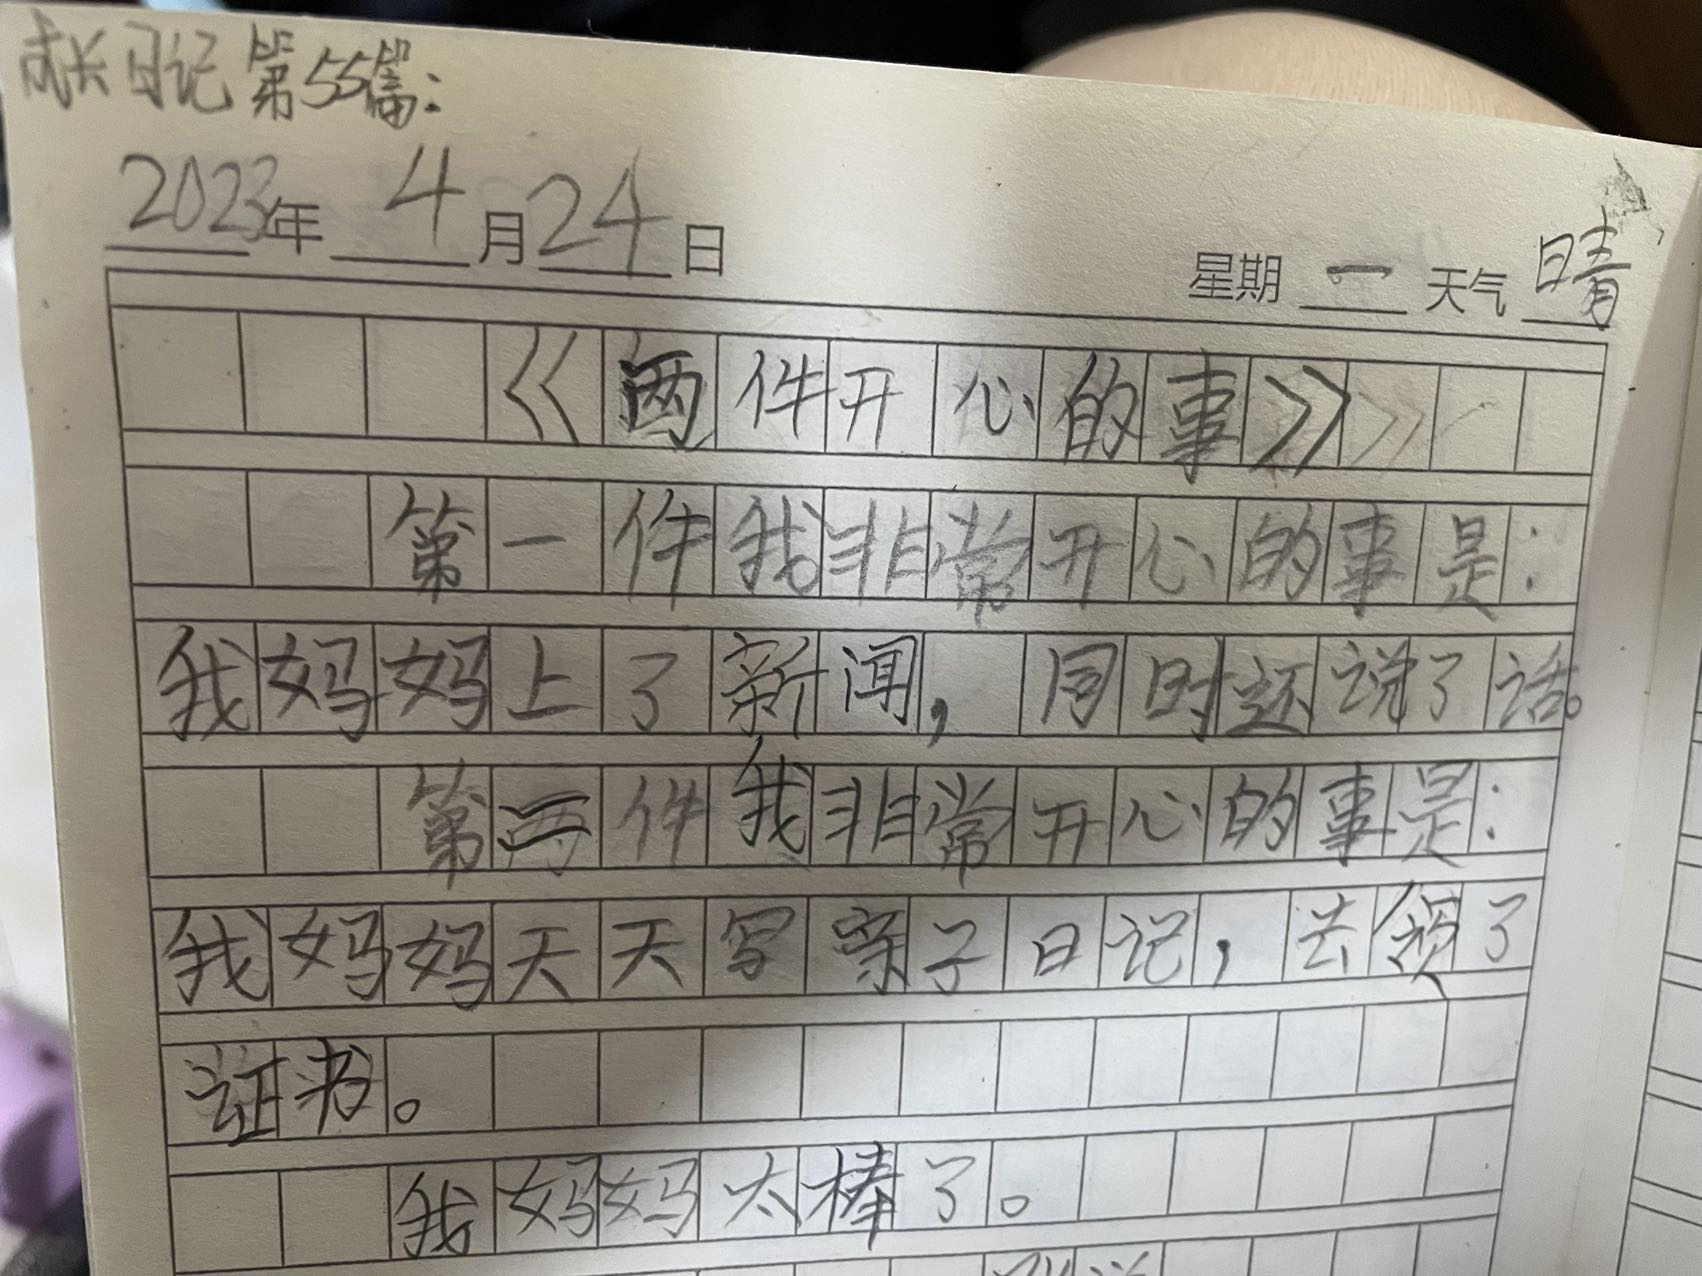 成长日记第55篇：
2023年 4月24日 星期一 天气晴
《两件开心的事》
第一件我非常开心的事是：
我妈妈上了新闻，同时还说了话。
第二件我非常开心的事是：
我妈妈天天写亲子日记，去领了
证书。
我妈妈太棒了。